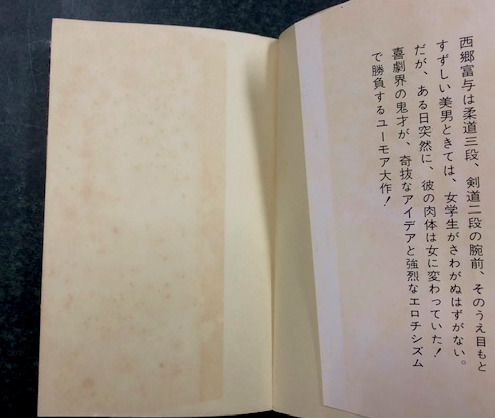 西郷富与は柔道三段、剣道二段の腕前、そのうえ目もと
すずしい美男ときては、女学生がさわがぬはずがない。
だが、ある日突然に、彼の肉体は女に変わっていた！
喜劇界の鬼才が、奇抜なアイデアと強烈なエロチシズム
で勝負するユーモア大作！